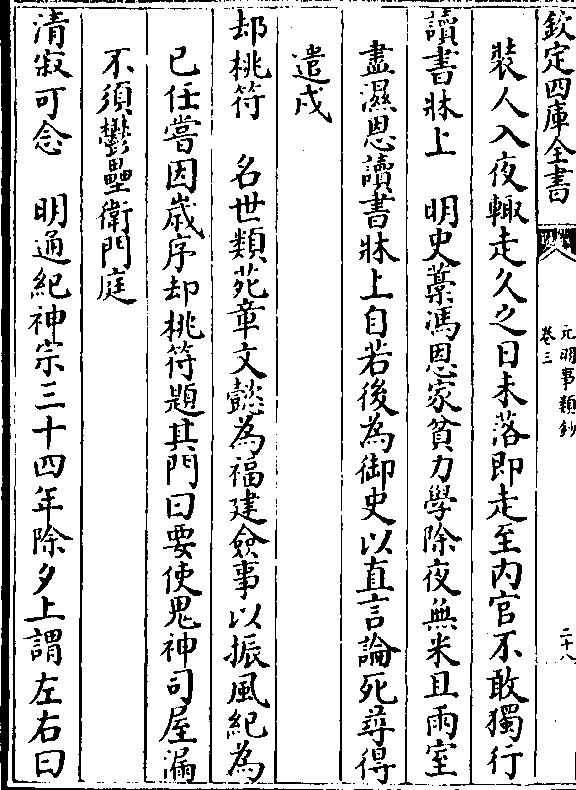 欽定四庫全書
元明事類鈔
卷三
二十八
裝人入夜輙走久之日未落即走至内官不敢獨行
讀書牀上　明史藁馮恩家貧力學除夜無米且雨室
盡濕恩讀書牀上自若後為御史以直言論死尋得
遣戍
却桃符　名世類苑章文懿為福建僉事以振風紀為
已任嘗因歲序却桃符題其門曰要使鬼神司屋漏
不須鬱壘衛門庭
清寂可念　明通紀神宗三十四年除夕上謂左右曰